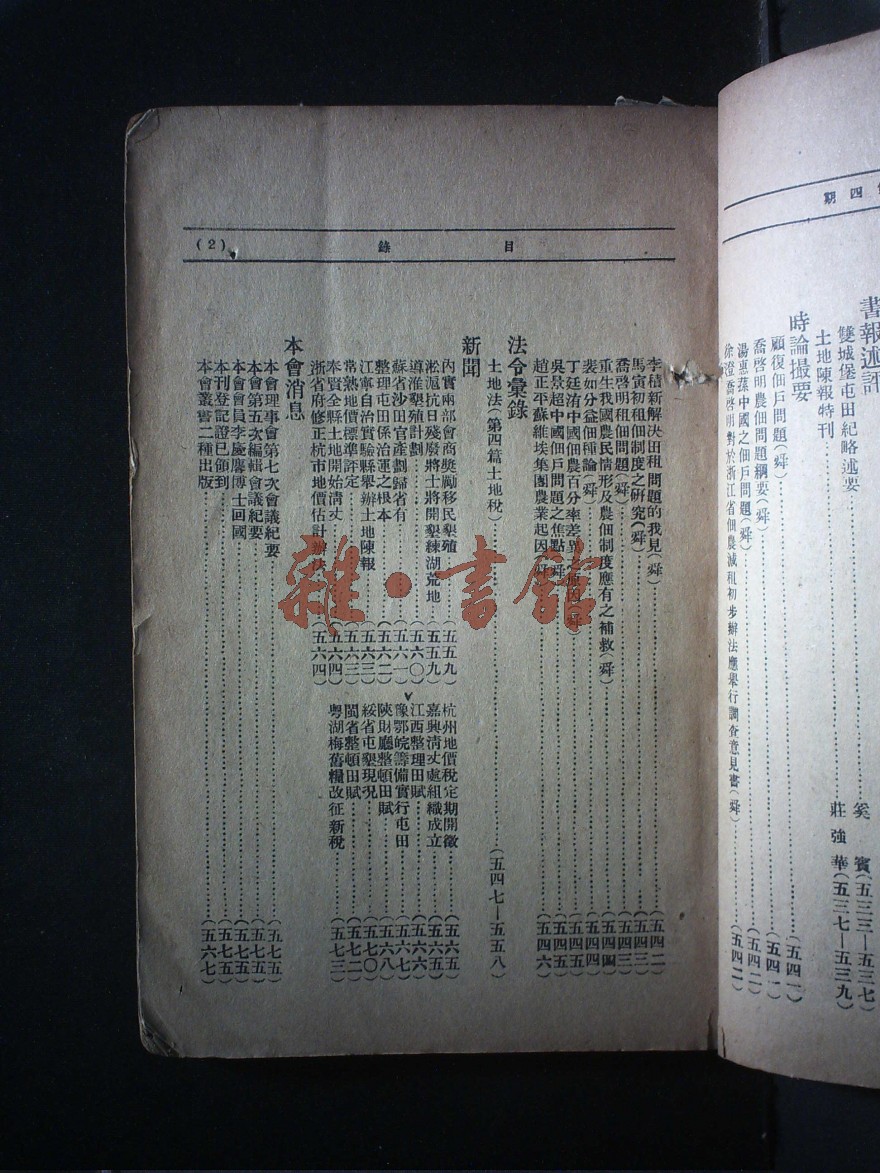 四期
書報述評
雙城堡屯田紀略述要 奚賓(五三三—五三七)
土地陳報特刊 莊強華(五三七—五三九)
時論撮要
顧復佃戶問題(舜)(五四一)
喬啓明農佃問題綱要(舜)(五四一)
湯惠蓀中國之佃戶問題(舜)(五四二)
徐澄喬啓明對於浙江省佃農減租初步辦法應舉行調查意見書(舜)(五四二)
目錄 (2)
李積新解決田租問題的我見(舜)(五四二)
馬寅初租佃制度之研究(舜)(五四三)
喬啓明租佃問題(舜)(五四三)
重生我國農民情形及農佃制度應有之補救(舜)(五四四)
裴如分益佃種論(舜)(五四四)
丁廷洧中國佃農百分率差異之原因(舜)(五四五)
吳景超中國佃戶問題之焦點(舜)(五四五)
趙正平蘇維埃集團農業起因(舜)(五四六)
法令彙錄
土地法(第四篇土地稅)(五四七—五五八)
新聞
內實兩部會商獎勵移民墾殖(五五九)
淞滬抗日殘廢將士將開墾練湖荒地(五五九)
導淮墾殖計劃(五六〇)
蘇省沙田官產劃歸省有(五六一)
整理屯田係治運之根本(五六二)
江寧自治實驗縣舉辦土地陳報(五六三)
常熟地價標準評定(五六三)
奉賢全縣土地開始清丈(五六四)
浙省府修正杭市地價估計辦法(五六四)
杭州地價稅定期開徵(五六五)
嘉興清丈處組織成立(五六五)
江西整理田賦(五六六)
豫鄂皖籌備實行屯田(五六七)
陝財廳整頓田賦(五六八)
綏省屯墾現況(五七〇)
閩省整頓田賦(五七二)
粵湖梅舊糧改征新稅(五七三)
本會消息
本會理事會第七次會議紀要(五七五)
本會第五次編輯會議紀要(五七五)
本會會員李慶麐博士回國(五七五)
本刊登記證已領到(五七五)
本會叢書二種出版(五六七)
雜·書館